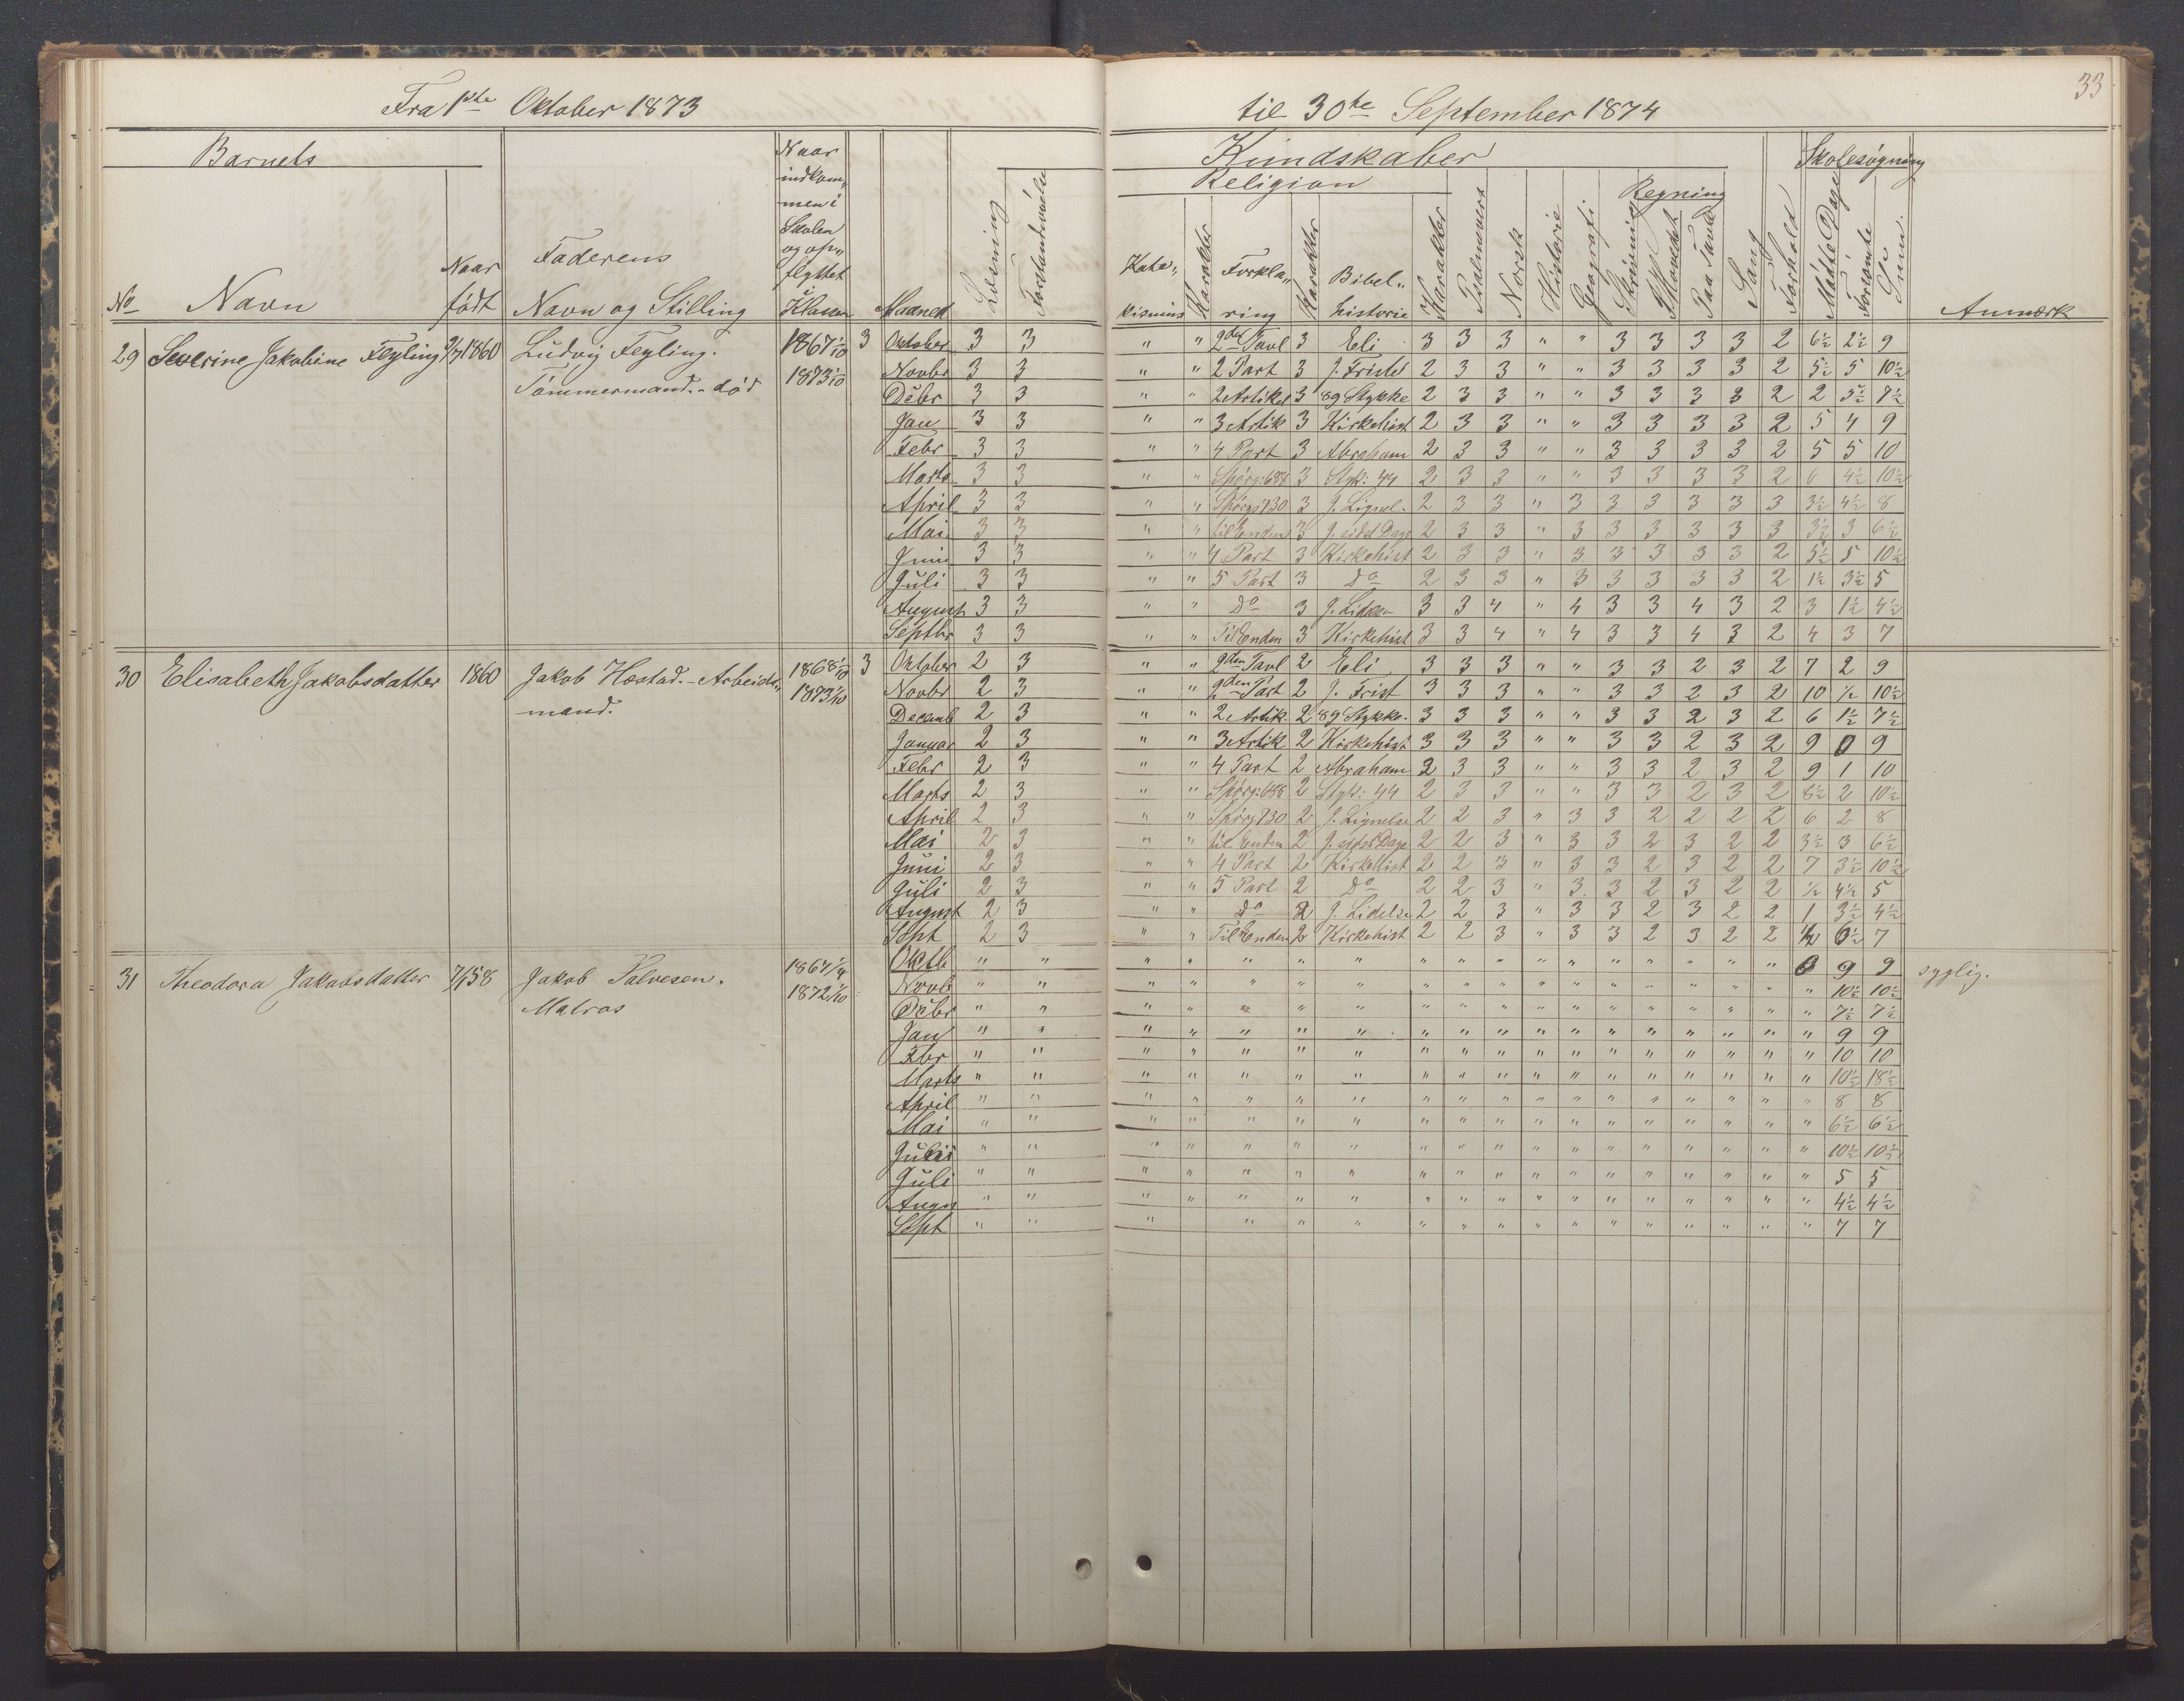 33
Fra 1ste Oktober 1873 til 30te September 1874
Barnets
Naar indkommen i Skolen og opflyttet i Klassen
Kundskaber
Skolesøgning
Religion
Regning
No Navn Naar født Faderens Navn og Stilling Maaned Læsning Katekismus Karakter Forklaring Karakter Bibelhistorie Karakter Psalmevers Norsk Historie Geografi Skrivning Paa Tavle Sang Forhold Mødte Dage Forsømte Sum Anmærk
29 Severine Jakobine Feyling 1860 Ludvig Feyling. 1867 1/10 3 Oktober 3 3 " " 2den Tavl 3 Eli 3 3 3 " " 3 3 3 3 2 6½ 2½ 9
Tømmermand.- død 1873 1/10 Novbr 3 3 " " 2 Part 3 J. Friste 2 3 3 " " 3 3 3 3 2 5½ 5 10½
Dēbr 3 3 " " 2 Artikel 3 89 Stykke 2 3 3 " " 3 3 3 3 2 2 5½ 7½
Jan 3 3 " " 3 Artik 3 Kirkehist 2 3 3 " " 3 3 3 3 2 5 4 9
Febr 3 3 " " 4 Part 3 Abraham 2 3 3 " " 3 3 3 3 2 5 5 10
Marts 3 3 " " Spørg: 688 3 Styk: 44 2 3 3 " " 3 3 3 3 2 6 4½ 10½
April 3 3 " " Spørgs 730 3 J. Lignel. 2 3 3 " 3 3 3 3 3 3 3½ 4½ 8
Mai 3 3 " " til Enden 3 J. sidst Dage 2 3 3 " 3 3 3 3 3 3 3½ 3 6½
Juni 3 3 " " 4 Part 3 Kirkehist 2 3 3 " 3 3 3 3 3 2 5½ 5 10½
Juli 3 3 " " 5 Part 3 Do 2 3 3 " 3 3 3 3 3 2 1½ 3½ 5
August 3 3 " " Do 3 J. Lidelse 3 3 4 " 4 3 3 4 3 2 3 1½ 4½
Septbr 3 3 " " Til Enden 3 Kirkehist 3 3 4 " 4 3 3 4 3 2 4 3 7
30 Elisabeth Jakobsdatter 1860 Jakob Høstad.- Arbeids- 1868 1/10 3 Oktober 2 3 " " 2den Tavl 2 Eli 3 3 3 " " 3 3 2 3 2 7 2 9
mand. 1873 1/10 Novbr 2 3 " " 2den Part 2 J. Frist 3 3 3 " " 3 3 2 3 2 10 ½ 10½
Decemb 2 3 " " 2 Artik. 2 89 Stykke. 3 3 3 " " 3 3 2 3 2 6 1½ 7½
Januar 2 3 " " 3 Artik 2 Kirkehist 3 3 3 " " 3 3 2 3 2 9 0 9
Febr 2 3 " " 4 Part 2 Abraham 2 3 3 " " 3 3 2 3 2 9 1 10
Marts 2 3 " " Spørg: 688 2 Styk: 44 2 3 3 " " 3 3 2 3 2 8½ 2 10½
April 2 3 " " Spørg 730 2 J. Lignelse 2 2 3 " 3 3 2 2 2 2 6 2 8
Mai 2 3 " " til Enden 2 J. sidst Dage 2 2 3 " 3 3 2 3 2 2 3½ 3 6½
Juni 2 3 " " 4 Part 2 Kirkehist 2 2 3 " 3 3 2 3 2 2 7 3½ 10½
Juli 2 3 " " 5 Part 2 Do 2 2 3 " 3 3 2 3 2 2 ½ 4½ 5
August 2 3 " " Do 2 J. Lidelse 2 2 3 " 3 3 2 3 2 2 1 3½ 4½
Sept 2 3 " " Til Enden 2 Kirkehist 2 2 3 " 3 3 2 3 2 2 ½ 6½ 7
31 Theodora Jakobsdatter 58 Jakob Salvesen. 1867 Oktb " " " " " " " " " " " " " " " " " 0 9 9 syglig.
Matros 1872 1/10 Novb " " " " " " " " " " " " " " " " " " 10½ 10½
Dēbr " " " " " " " " " " " " " " " " " " 7½ 7½
Jan " " " " " " " " " " " " " " " " " " 9 9
Fbr " " " " " " " " " " " " " " " " " " 10 10
Marts " " " " " " " " " " " " " " " " " " 10½ 18½
April " " " " " " " " " " " " " " " " " " 8 8
Mai " " " " " " " " " " " " " " " " " " 6½ 6½
" " " " " " " " " " " " " " " " " " 10½ 10½
Juli " " " " " " " " " " " " " " " " " " 5 5
Augu " " " " " " " " " " " " " " " " " " 4½ 4½
Sept " " " " " " " " " " " " " " " " " 7 7